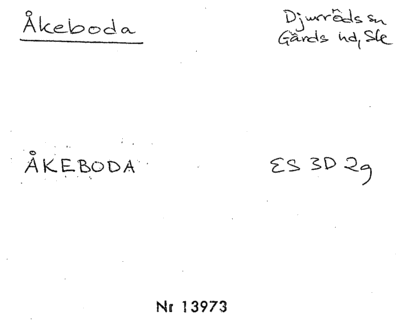 Åkeboda
Djurröds sn
Gärds hd, Sk
ÅKEBODA
ES 3D 2g
Nr 13973